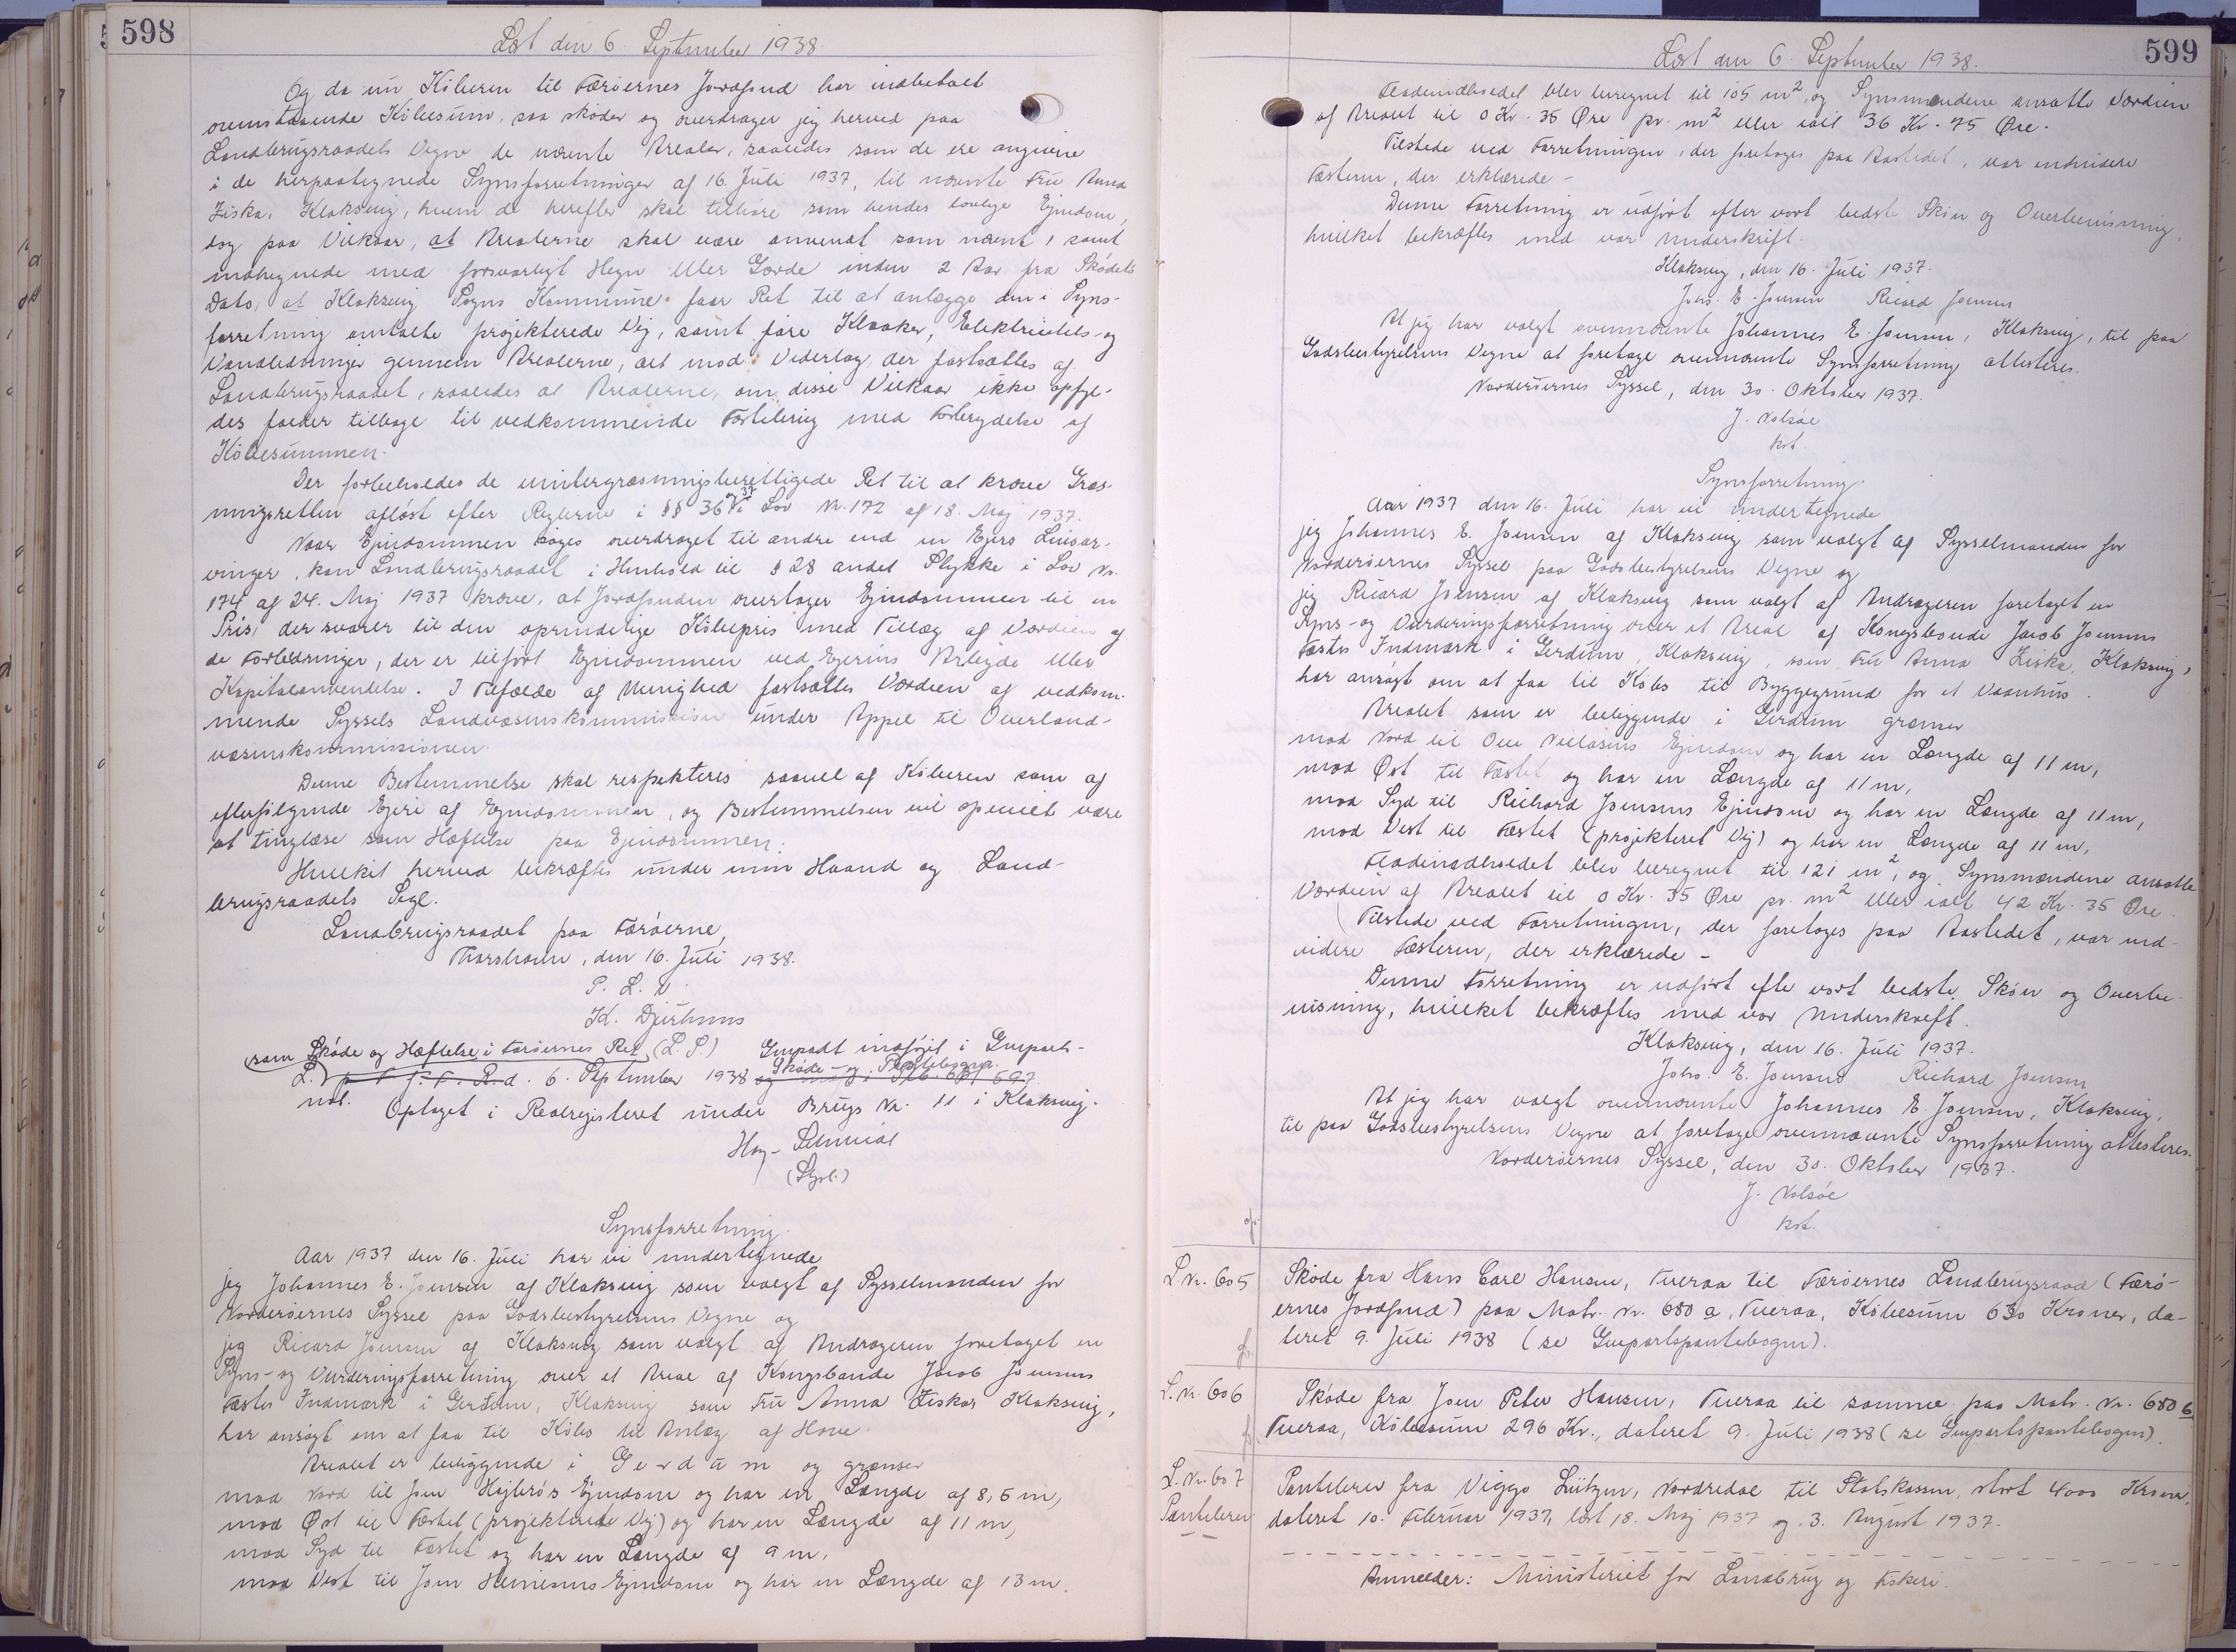 598
Læst den 6. September 1938.
Og da nu Köberen til Færöernes Jordfond har indbetalt
ovenstaaende Köbesum, saa skøder og overdrager jeg herved paa
Landbrugsraadets Vegne de nævnte Arealer, saaledes som de ere angivne
i de herpaategnede Synsforretninger af 16. Juli 1937, til nævnte Fru Anna
Ziska, Klaksvig, hvem de herefter skal tilhøre som hendes lovlige Ejendom,
dog paa Vilkaar, at Arealerne skal være anvendt som nævnt, samt
indhegnede med forsvarligt Hegn eller Gærde inden 2 Aar fra Skødets
Dato, at Klaksvig Sogns Kommune faar Ret til at anlægge den i Syns-
forretning omtalte projekterede Vej, samt føre Kloaker, Elektricitets- og
Vandledninger gennem Arealerne, alt mod Vederlag, der fastsættes af
Landbrugsraadet, saaledes at Arealerne, om disse Vilkaar ikke opfyl-
des falder tilbage til vedkommende Fæstebrug med Fortrydelse af
Köbesummen.
Der forbeholdes de vintergræsningsberettigede Ret til at kræve Græs-
ningsretten afløst efter Reglerne i §§ 36 og 37 i Lov Nr. 172 af 18. Maj 1937.
Naar Ejendommen søges overdraget til andre end en Ejers Livsar-
vinger, kan Landbrugsraadet i Henhold til § 28 andet Stykke i Lov Nr.
174 af 24. Maj 1937 kræve, at Jordfonden overtager Ejendommen til en
Pris, der svarer til den oprindelige Köbepris med Tillæg af Værdien af
de Forbedringer, der er tilført Ejendommen ved Ejerens Arbejde eller
Kapitalanvendelse. I Tilfælde af Uenighed fastsættes Værdien af vedkom-
mende Syssels Landvæsenskommission under Appel til Overland-
væsenskommissionen.
Denne Bestemmelse skal respekteres saavel af Köberen som af
efterfølgende Ejere af Ejendommen, og Bestemmelsen vil specielt være
at tinglæse som Hæftelse paa Ejendommen.
Hvilket herved bekræftes under min Haand og Land-
brugsraadets Segl.
Landbrugsraadet paa Færöerne,
Thorshavn, den 16. Juli 1938.
P. L. V.
K. Djurhuus
som Skøde og Hæftelse i Færøernes Ret (L. S.) Genpart indføjet i Genparts-
Skøde- og Pantebogen.
L. p. F. f. F. R. d. 6. September 1938
not. Optaget i Realregisteret under Brugs Nr. 11 i Klaksvig.
Hoy-Schmidt
(Styrl.)
Synsforretning.
Aar 1937 den 16. Juli har vi undertegnede
jeg Johannes E. Joensen af Klaksvig som valgt af Sysselmanden for
Norderöernes Syssel paa Godsbestyrelsens Vegne og
jeg Ricard Joensen af Klaksvig som valgt af Andrageren foretaget en
Syns- og Vurderingsforretning over et Areal af Kongsbonde Jacob Joensens
Fæstes Indmark i Gerdum, Klaksvig som Fru Anna Ziskas Klaksvig,
har ansøgt om at faa til Købs til Anlæg af Have.
Arealet er beliggende i Gerdum og grænser
mod Nord til Joen Højbrös Ejendom og har en Længde af 8,5 m,
mod Øst til Fæstet (projekterede Vej) og har en Længde af 11 m,
mod Syd til Fæstet og har en Længde af 9 m,
mod Vest til Joen Heinesens Ejendom og har en Længde af 13 m.
599
Læst den 6. September 1938.
Fladeindholdet blev beregnet til 105 m², og Synsmændene ansatte Værdien
af Arealet til 0 Kr. 35 Øre pr. m² eller ialt 36 Kr. 75 Øre.
Tilstede ved Forretningen, der foretoges paa Aastedet, var endvidere
Fæsteren, der erklærede –
Denne Forretning er udført efter vort bedste Skön og Overbevisning,
hvilket bekræftes med vor Underskrift.
Klaksvig, den 16. Juli 1937.
Johs. E. Joensen Ricard Joensen
At jeg har valgt ovennævnte Johannes E. Joensen, Klaksvig, til paa
Godsbestyrelsens Vegne at foretage ovennævnte Synsforretning attesteres.
Norderöernes Syssel, den 30. Oktober 1937.
J. Nolsöe
kst.
Synsforretning.
Aar 1937 den 16. Juli har vi undertegnede
jeg Johannes E. Joensen af Klaksvig som valgt af Sysselmanden for
Norderöernes Syssel paa Godsbestyrelsens Vegne og
jeg Ricard Joensen af Klaksvig som valgt af Andrageren foretaget en
Syns- og Vurderingsforretning over et Areal af Kongsbonde Jacob Joensens
Fæstes Indmark i Gerdum, Klaksvig, som Fru Anna Ziska, Klaksvig,
har ansøgt om at faa til Købs til Byggegrund for et Vaanhus.
Arealet som er beliggende i Gerdum grænser
mod Nord til Ove Nielasens Ejendom og har en Længde af 11 m,
mod Øst til Fæstet og har en Længde af 11 m,
mod Syd til Richard Joensens Ejendom og har en Længde af 11 m,
mod Vest til Fæstet (projekteret Vej) og har en Længde af 11 m,
Fladeindholdet blev beregnet til 121 m², og Synsmændene ansatte
Værdien af Arealet til 0 Kr. 35 Øre pr. m² eller ialt 42 Kr. 35 Øre.
Tilstede ved Forretningen, der foretoges paa Aastedet, var end-
videre Fæsteren, der erklærede –
Denne Forretning er udført efter vort bedste Skön og Overbe-
visning, hvilket bekræftes med vor Underskrift.
Klaksvig, den 16. Juli 1937.
Johs. E. Joensen Richard Joensen
At jeg har valgt ovennævnte Johannes E. Joensen, Klaksvig,
til paa Godsbestyrelsens Vegne at foretage ovennævnte Synsforretning attesteres.
Norderöernes Syssel, den 30. Oktober 1937.
J. Nolsöe
kst.
L. Nr. 605 Skøde fra Hans Carl Hansen, Tveraa til Færöernes Landbrugsraad (Færö-
ernes Jordfond) paa Matr. Nr. 680 a, Tveraa, Köbesum 630 Kroner, da-
teret 9. Juli 1938 (se Genpartspantebogen).
L. Nr. 606 Skøde fra Joen Peter Hansen, Tveraa til samme paa Matr. Nr. 680 b
Tveraa, Köbesum 296 Kr., dateret 9. Juli 1938 (se Genpartspantebogen).
L. Nr. 607 Pantebrev fra Viggo Lützen, Nordredal til Statskassen, stort 4000 Kroner,
Pantebrev dateret 10. Februar 1937, læst 18. Maj 1937 og 3. August 1937.
Anmelder: Ministeriet for Landbrug og Fiskeri.